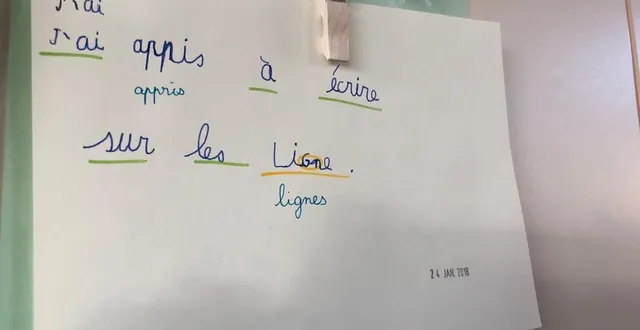 J'ai
J'ai appis à écrire
appris
sur les Ligne.
lignes
24 JAN. 2018